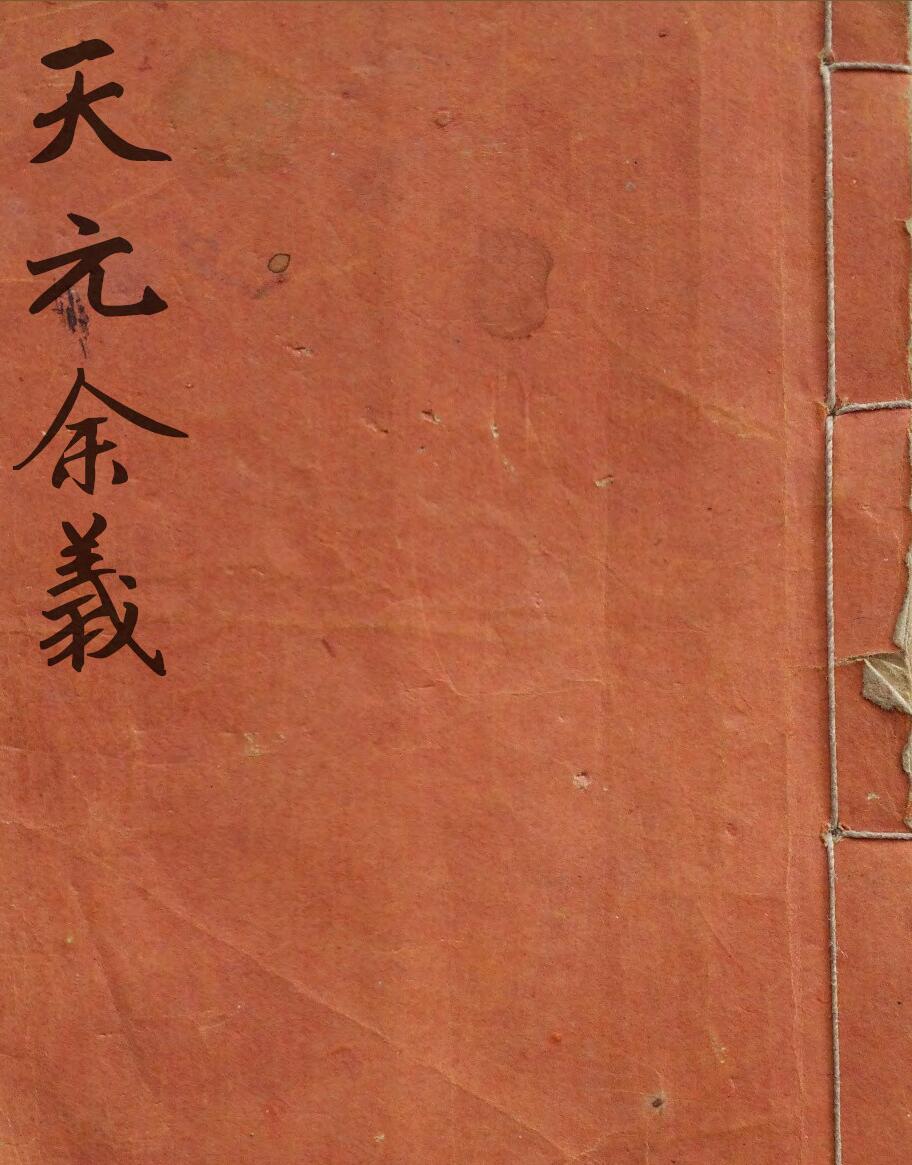 天元余義